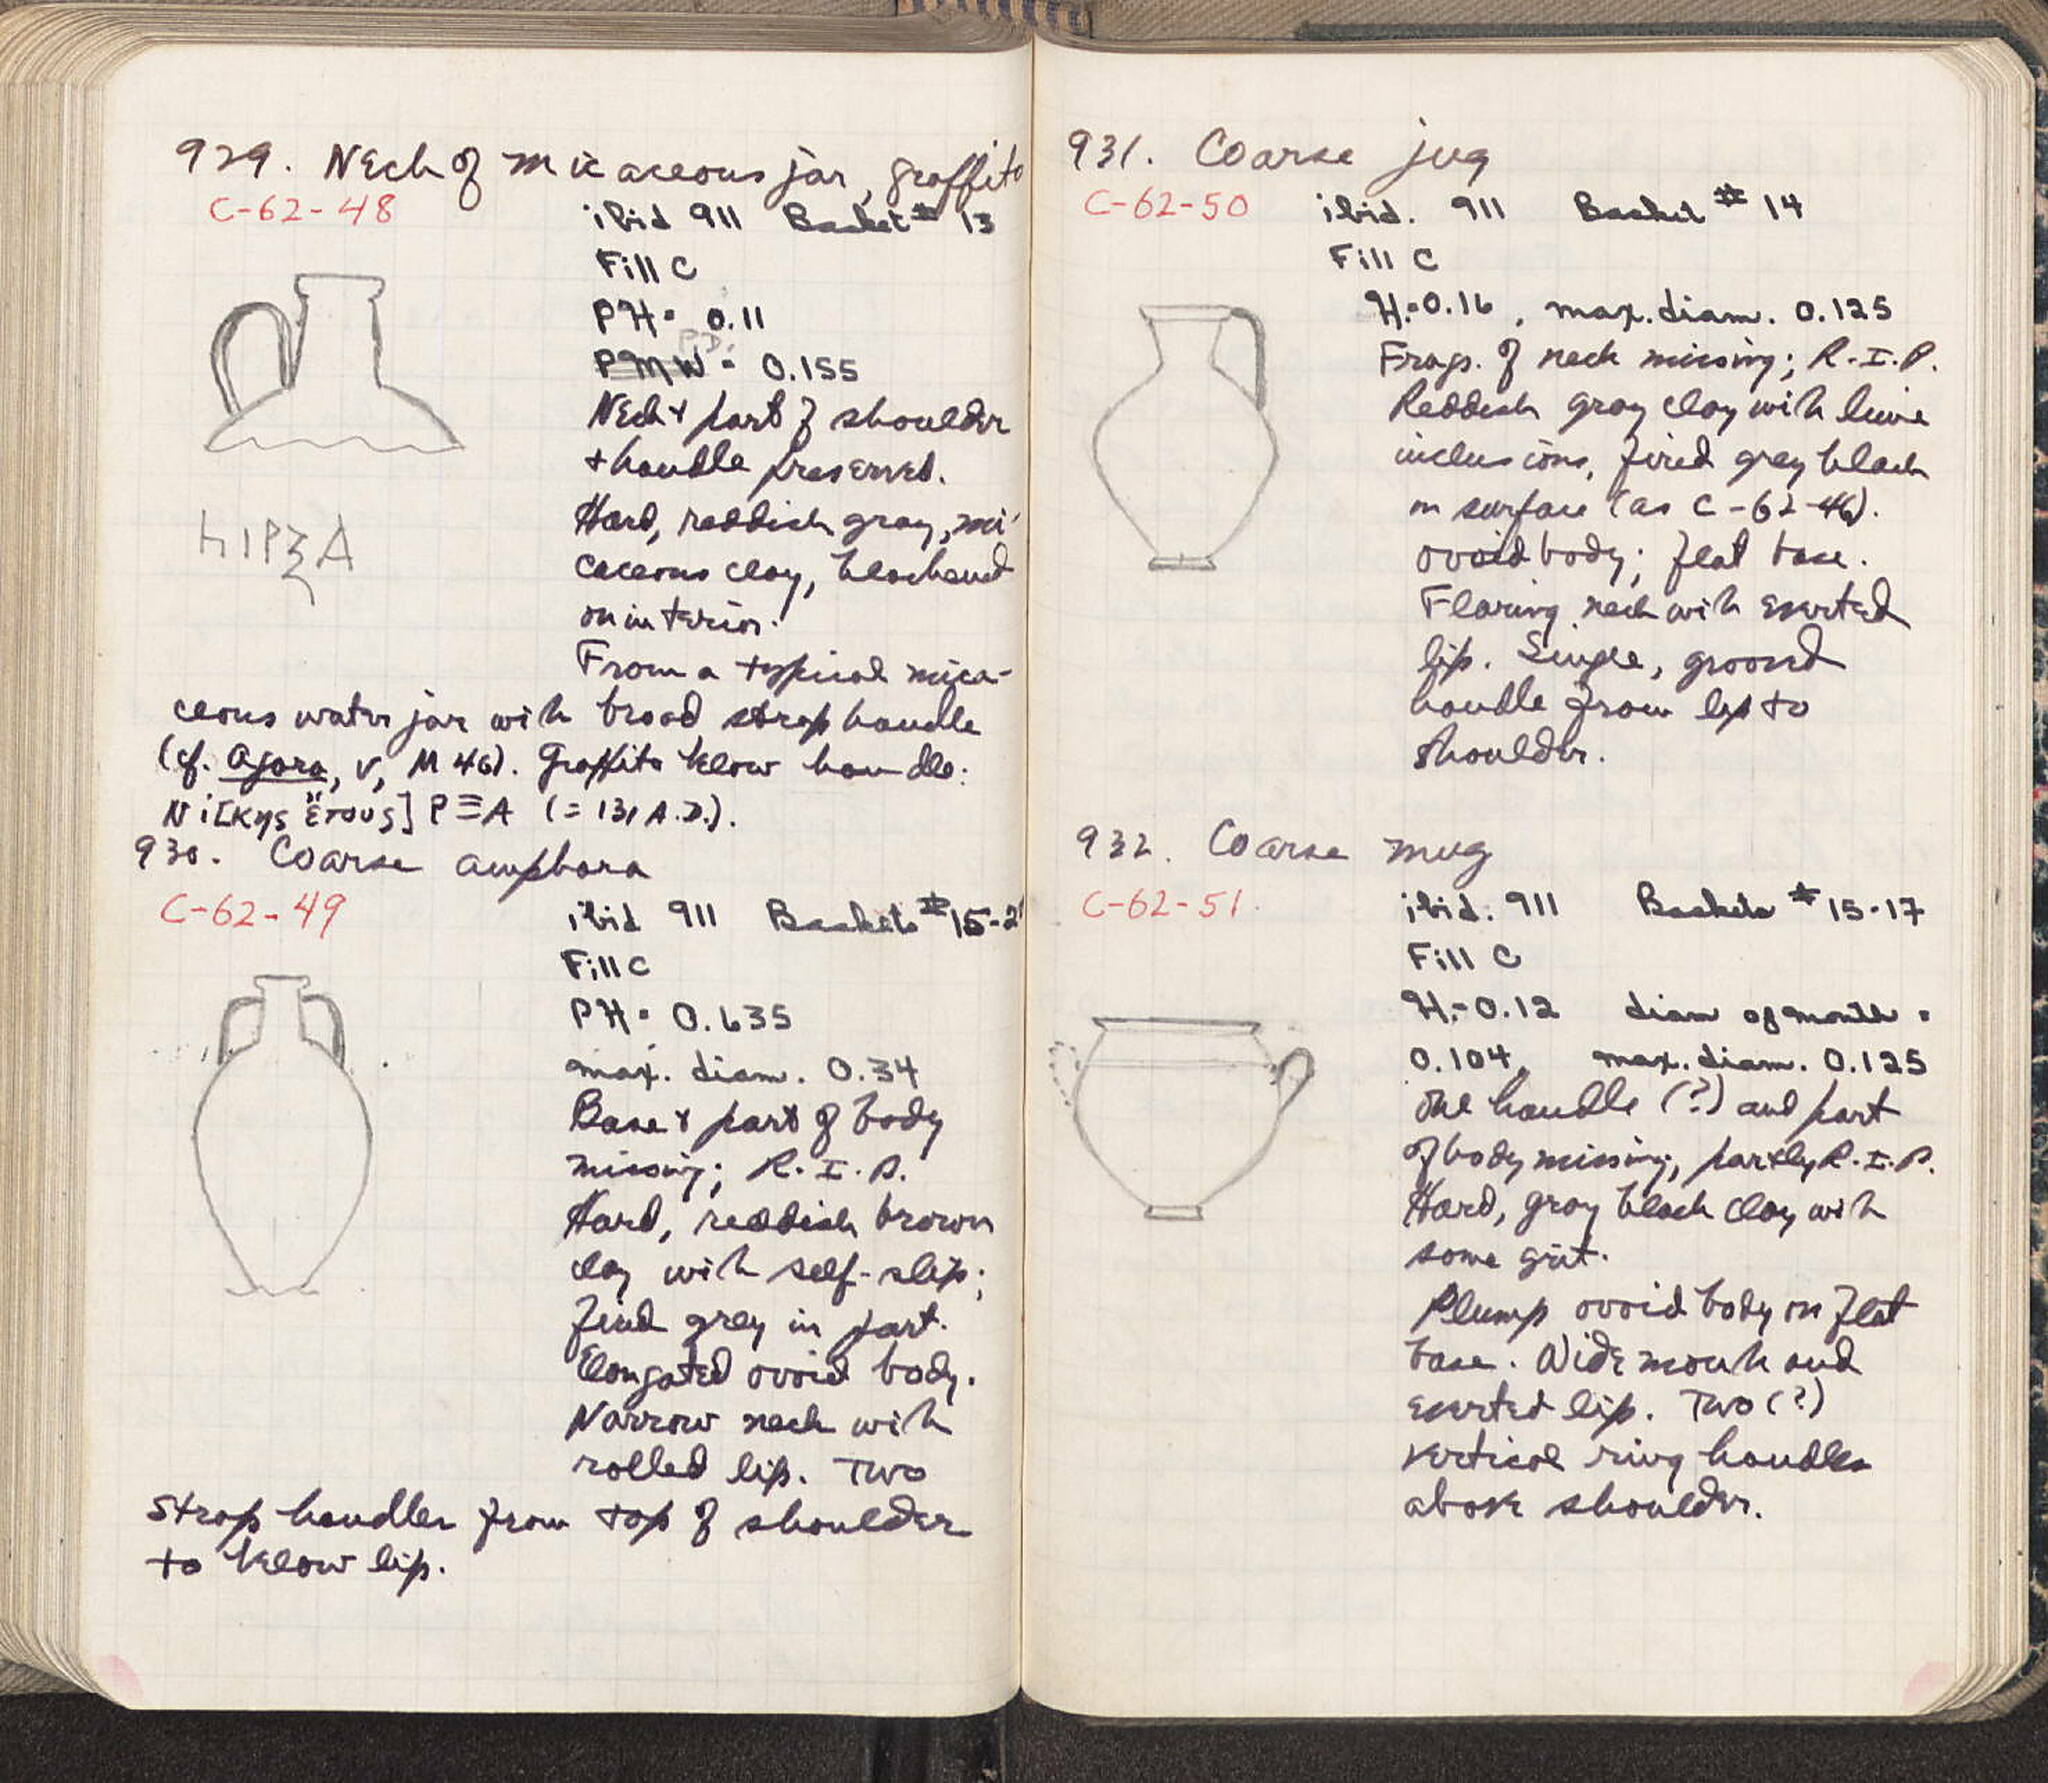 929. Neck of micaceous jar, graffito
C-62-48
ibid 911 Basket # 13
Fill C
PH = 0.11
P.D.
PMW = 0.155
Neck + part of shoulder
+ handle preserved.
Hard, reddish gray, mi-
caceous clay, blackened
on interior.
From a typical mica-
ceous water jar with broad strap handle
(cf. Agora, V, M 46). Graffito below handle:
Νί[κης ἔτους] ΡΞΑ (= 131 A.D.).
930. Coarse amphora
C-62-49
ibid 911 Baskets # 15-2
Fill C
PH = 0.635
max. diam. 0.34
Base + part of body
missing; R.I.P.
Hard, reddish brown
clay with self-slip;
fired grey in part.
Elongated ovoid body.
Narrow neck with
rolled lip. Two
strap handles from top of shoulder
to below lip.
931. Coarse jug
C-62-50
ibid. 911 Basket # 14
Fill C
H.=0.16, max. diam. 0.125
Frags. of neck missing; R.I.P.
Reddish gray clay with lime
inclusions, fired gray black
on surface (as C-62-46).
Ovoid body; flat base.
Flaring neck with everted
lip. Single, grooved
handle from lip to
shoulder.
932. Coarse mug
C-62-51.
ibid. 911 Baskets # 15-17
Fill C
H.=0.12 diam of mouth =
0.104, max. diam. 0.125
One handle (?) and part
of body missing, partly R.I.P.
Hard, gray black clay with
some grit.
Plump ovoid body on flat
base. Wide mouth and
everted lip. Two (?)
vertical ring handles
above shoulder.